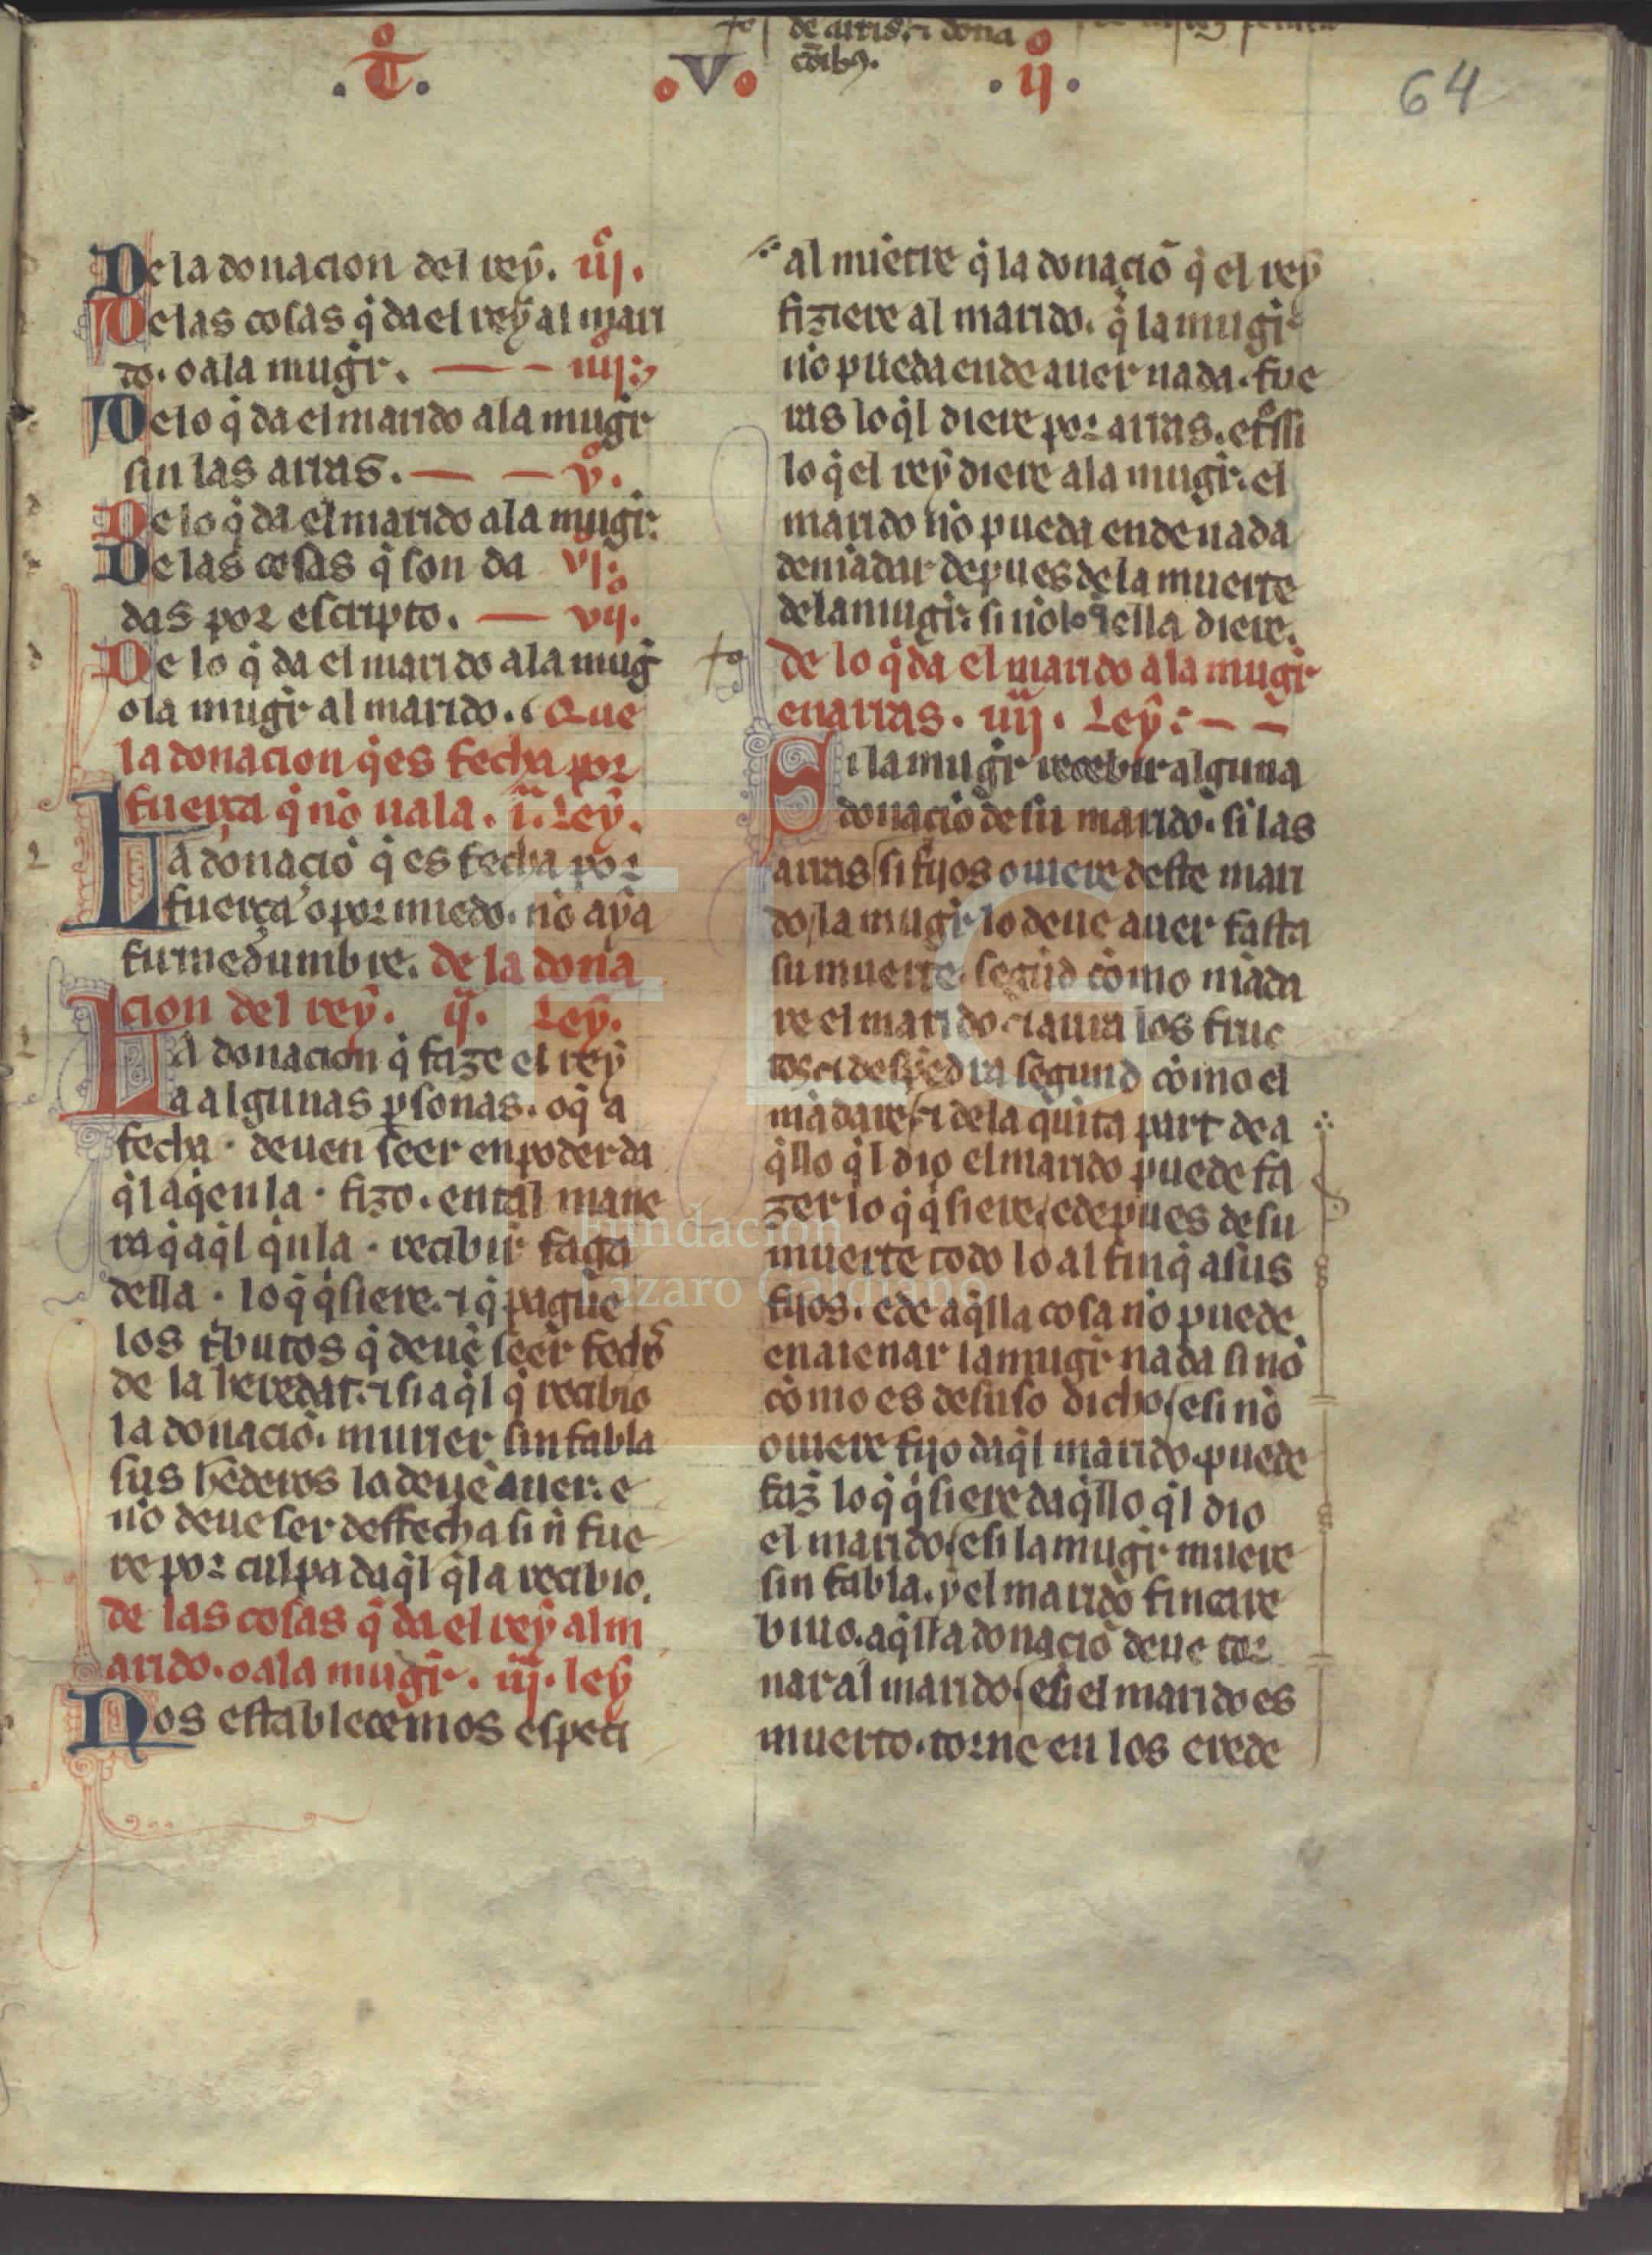 de arris ⁊ dona
cōibꝰ.
.T͛. .V. .ij.
64
De la donacion del rey. iij.
De las cosas q̇ da el rey al mari
do. o ala mugr̄. iiij.
De lo q̇ da el marido ala mugr̄
sin las arras. v.
De lo q̇ da el marido ala mugr̄.
De las cosas q̇ son da vj.
das por escripto. vij.
De lo q̇ da el marido ala mug̃
o la mugr̄ al marido. Que
la donacion q̇es fecha por
fuerça q̇ nō uala. i. Ley.
La donaciō q̇ es fecha por
fuerça o por miedo. nō aya
firmedumbre. de la dona
cion del rey. ij. Ley.
La donacion q̇ faze el rey
a algunas ꝑsonas. o q̇ a
fecha. deuen seer en poder da
q̇l aq̇en la. fizo. en tal mane
ra q̇ aq̇l q̇ la. recibir faga
della. lo q̇ q̇siere. ⁊ q̇ pague
los tͥbutos q̇ deuē seer fechͦs
de la heredat. ⁊ si aq̇l q̇ recibio
la donaciō. murier sin fabla
sus hēderos la deuē auer. e
nō deue ser deffecha si n̄ fue
re por culpa daq̇l q̇ la recibio.
de las cosas q̇ da el rey al m
arido. o ala mugr̄. iij. ley
Nos establecemos especi
al miētre q̇ la donaciō q̇ el rey
fiziere al marido. q̇ la mugr̄
nō pueda ende auer nada. fue
ras lo q̇l diere por arras. et͛ssi
lo q̇ el rey diere ala mugr̄. el
marido nō pueda ende nada
demādar depues de la muerte
de la mugr̄. si nō lo q̇ ella diere.
de lo q̇ da el marido ala mugr̄
en arras. iiij. Ley.
Si la mugr̄ recebir alguna
donaciō de su marido. si las
arras si fijos ouiere deste mari
do/ la mugr̄ lo deue auer fasta
su muerte. segūd cōmo māda
re el marido. ⁊ aura los fruc
tos. ⁊ despēdra segund cōmo el
mādare. ⁊ de la q̇nta part de a
q̇llo q̇l dio el marido puede fa
zer lo q̇ q̇siere. e depues de su
muerte todo lo al finq̇ a sus
fijos. e de aq̇lla cosa nō puede
enaienar la mugr̄ nada si nō
cōmo es de suso dicho. e si nō
ouiere fijo daq̇l marido. puede
faz̄ lo q̇ q̇siere daq̇llo q̇l dio
el marido. e si la mugr̄ muere
sin fabla. y el marido fincare
biuo. aq̇lla donaciō deue tor
nar al marido. e si el marido es
muerto. torne en los erede
Fundación
Lázaro Galdiano